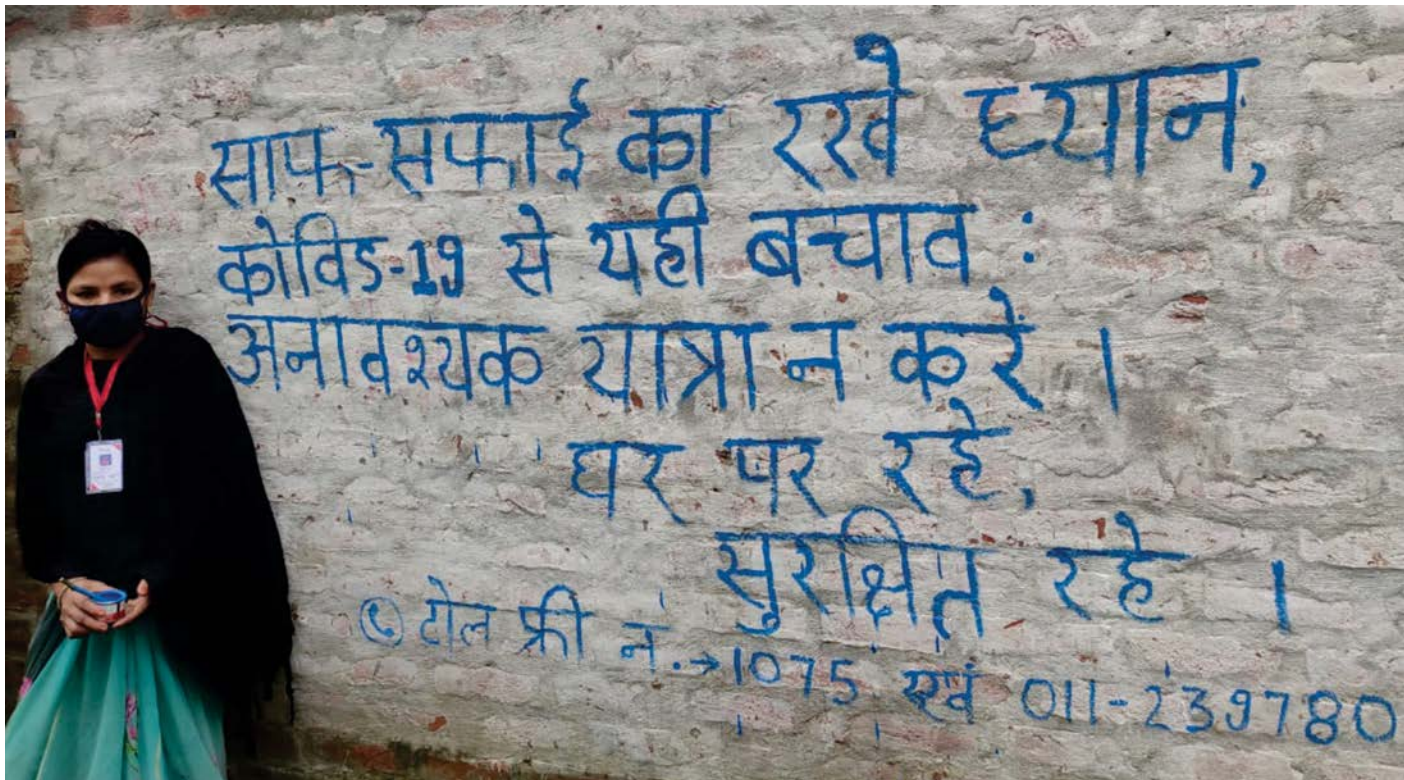 साफ-सफाई का रखे ध्यान,
कोविड-19 से यही बचाव :
अनावश्यक यात्रा न करें ।
घर पर रहे,
सुरक्षित रहे ।
टोल फ्री नं. → 1075 एवं 011-239780